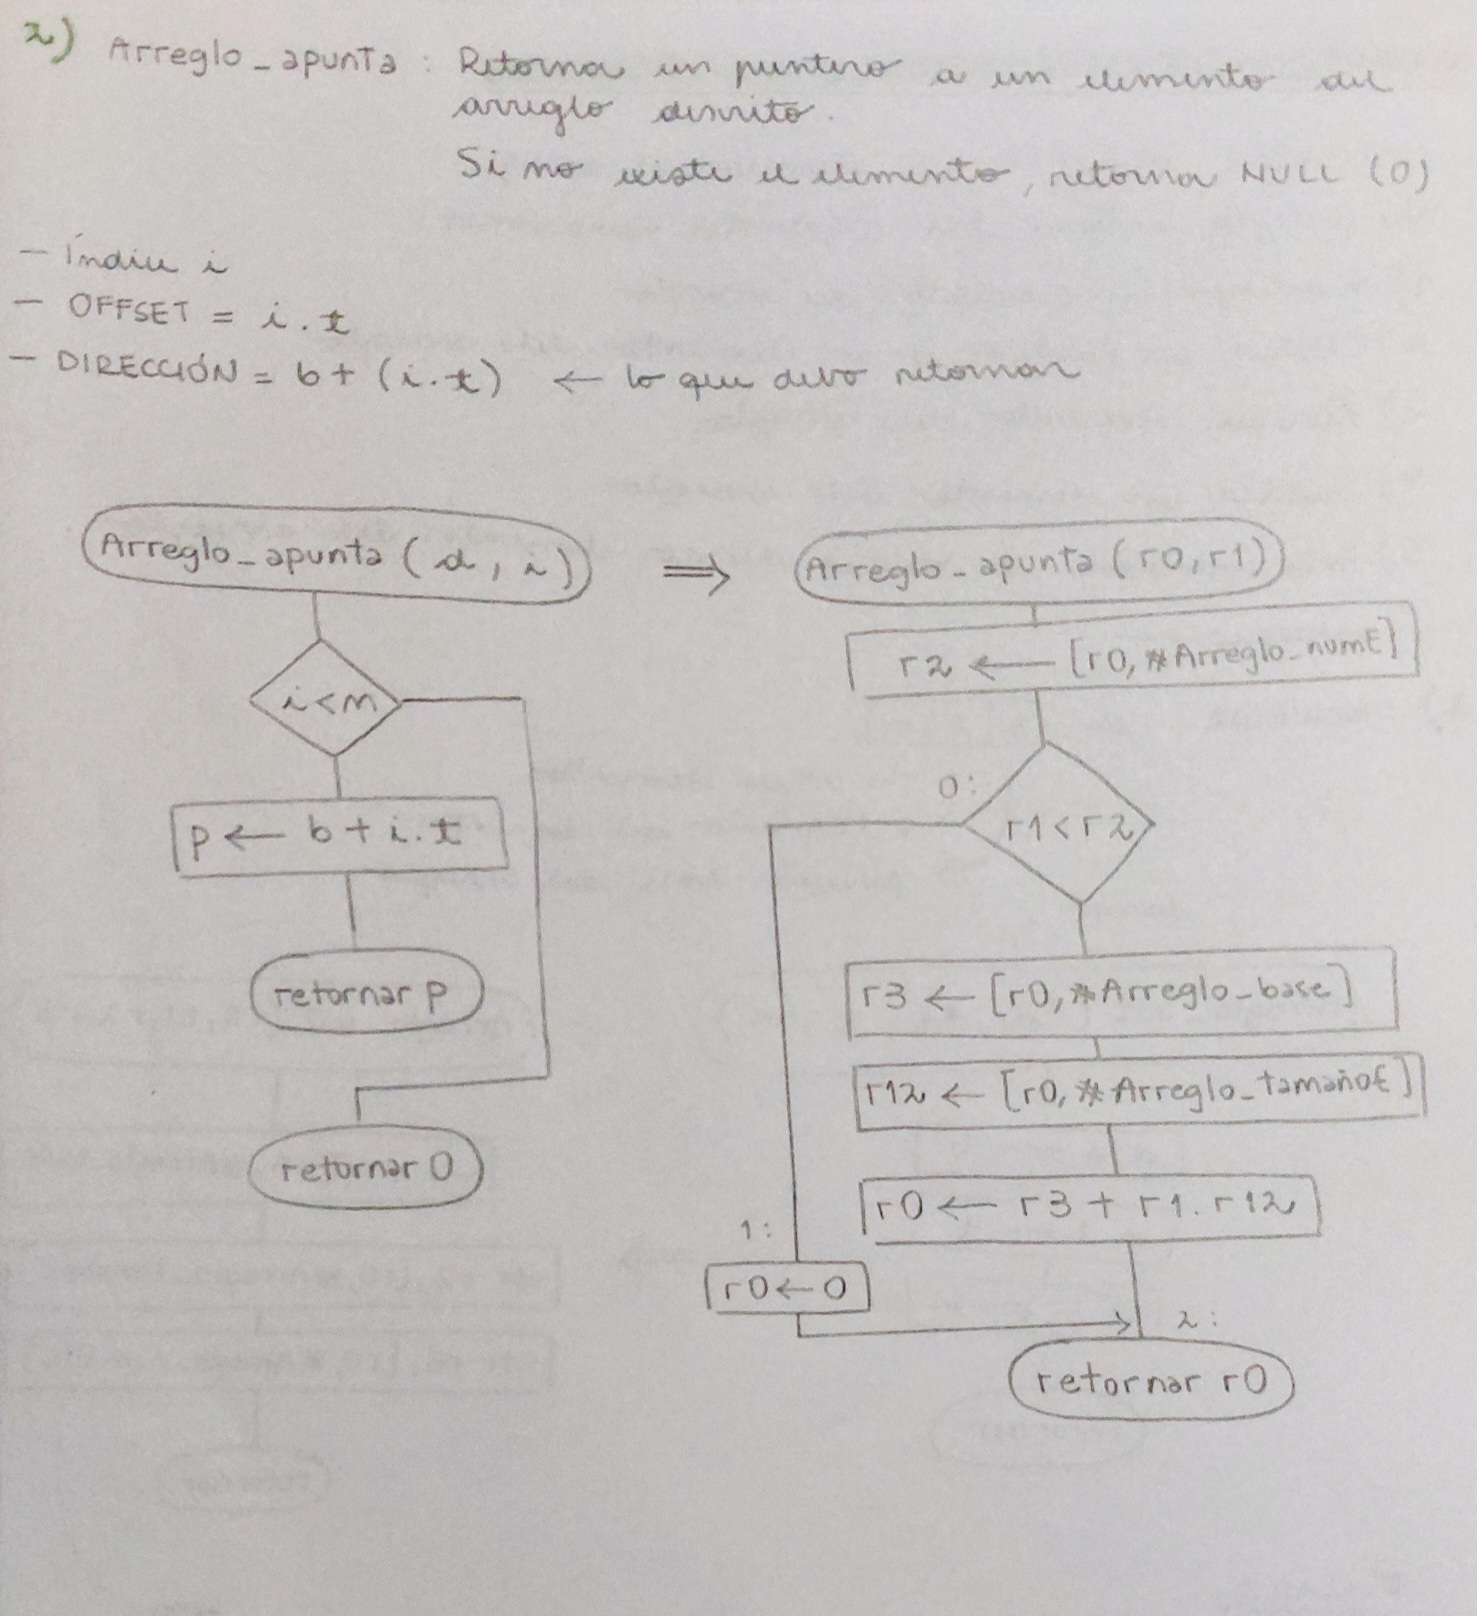 2) Arreglo_apunta : Retorna un puntero a un elemento del
arreglo descrito.
Si no existe el elemento, retorna NULL (0)
- Índice i
- OFFSET = i.t
- DIRECCIÓN = b + (i.t) ← lo que debo retornar
Arreglo_apunta (d, i)
⇒
Arreglo_apunta (r0, r1)
i<n
p ← b + i.t
retornar p
retornar 0
r2 ← [r0, #Arreglo_numE]
0:
r1 < r2
r3 ← [r0, #Arreglo_base]
r12 ← [r0, #Arreglo_tamañoE]
r0 ← r3 + r1.r12
1:
r0 ← 0
2:
retornar r0